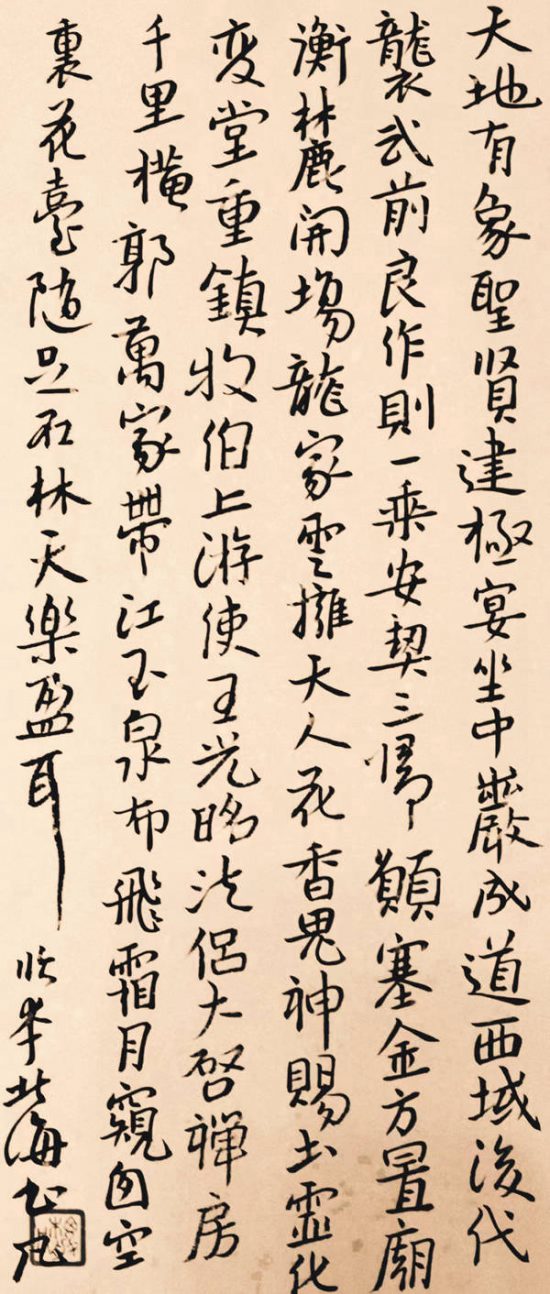 天地有象聖賢建極宴坐中巖成道西域後代
襲武前良作則一乘安契三歸願塞金方置廟
衡麓開場龍家雲擁天人花香鬼神賜土靈化
変堂重鎮牧伯上游使王光昭法侶大啓禪房
千里橫郭萬家帶江玉泉布飛霜月窺囱空
裏花臺隨足石林天樂盈耳
临李北海